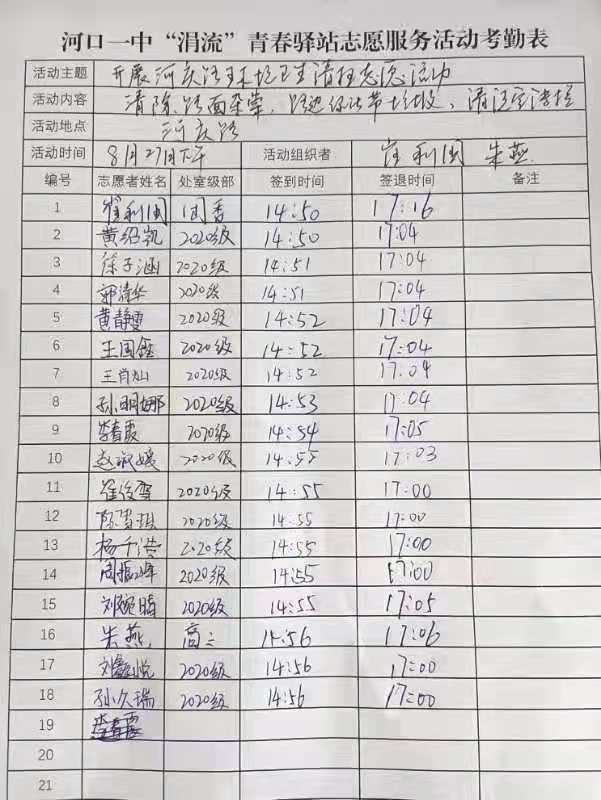 河口一中“涓流”青春驿站志愿服务活动考勤表
活动主题 开展河庆路环境卫生清理志愿活动
活动内容 清除路面杂草，路边绿化带垃圾，清洁宣传栏
活动地点 河庆路
活动时间 8月27日下午 活动组织者 崔利国 朱燕
编号 志愿者姓名 处室级部 签到时间 签退时间 备注
1 崔利国 团委 14:50 17:16
2 黄绍凯 2020级 14:50 17:04
3 徐子涵 2020级 14:51 17:04
4 郭清华 2020级 14:51 17:04
5 黄静雯 2020级 14:52 17:04
6 王国鑫 2020级 14:52 17:04
7 王肖灿 2020级 14:52 17:04
8 孙明娜 2020级 14:53 17:04
9 李春霞 2020级 14:54 17:05
10 赵淑媛 2020级 14:55 17:03
11 崔俊雪 2020级 14:55 17:00
12 2020级 14:55 17:00
13 杨千浩 2020级 14:55 17:00
14 周振峰 2020级 14:55 17:00
15 刘婉晴 2020级 14:55 17:05
16 朱燕 高二 14:56 17:06
17 刘鑫悦 2020级 14:56 17:00
18 孙久瑞 2020级 14:56 17:00
19
20
21